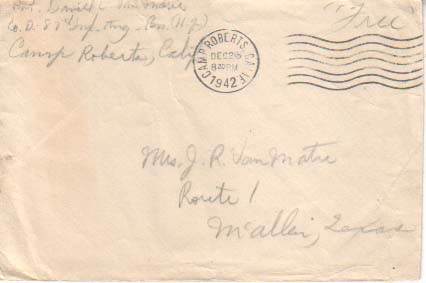 Pvt. Daniel L Van Matre
Co. D. 87th Inf. Trng. Bn. (H.J.)
Camp Roberts, Calif
"Free"
CAMP ROBERTS, CALIF.
DEC 26
8 30 PM
1942
Mrs. J. R. Van Matre
Route 1
McAllen, Texas